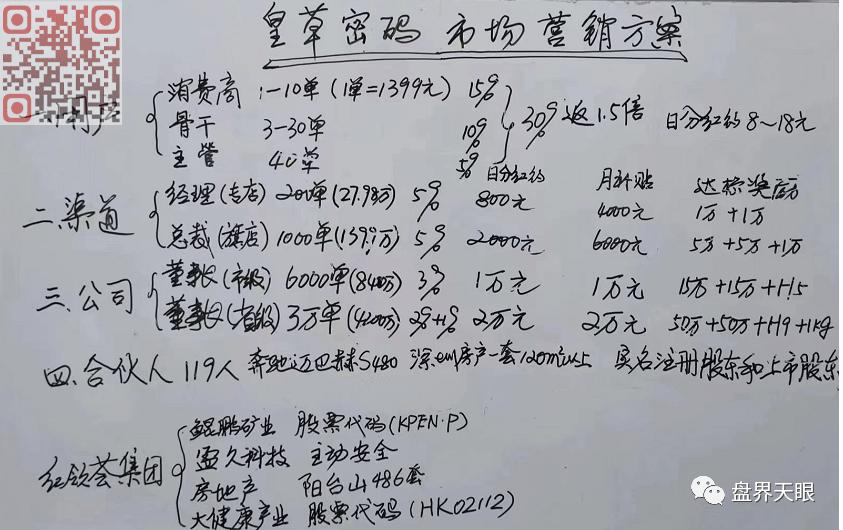 皇草密码 市场营销方案
消费商 1-10单(1单=1399元) 15%
骨干 3-30单 10% 30% 返1.5倍 日分红约8~18元
主管 40单 5%
日分红约 月补贴 达标奖励
二.渠道
经理(专店) 200单(27.98万) 5% 800元 4000元 1万+1万
总裁(旗店) 1000单(139.9万) 5% 2000元 6000元 5万+5万+1万
三.公司
董事长(市级) 6000单(840万) 3% 1万元 1万元 15万+15万+H5
董事长(省级) 3万单(4200万) 2%+1% 2万元 2万元 50万+50万+H9+1kg
四.合伙人 119人 奔驰迈巴赫S480 深圳房产一套120m²以上 实名注册股东和上市股东
红领荟集团
鲲鹏矿业 股票代码(KPEN·P)
盈久科技 主动安全
房地产 阳台山486套
大健康产业 股票代码(HK02112)
盘界天眼